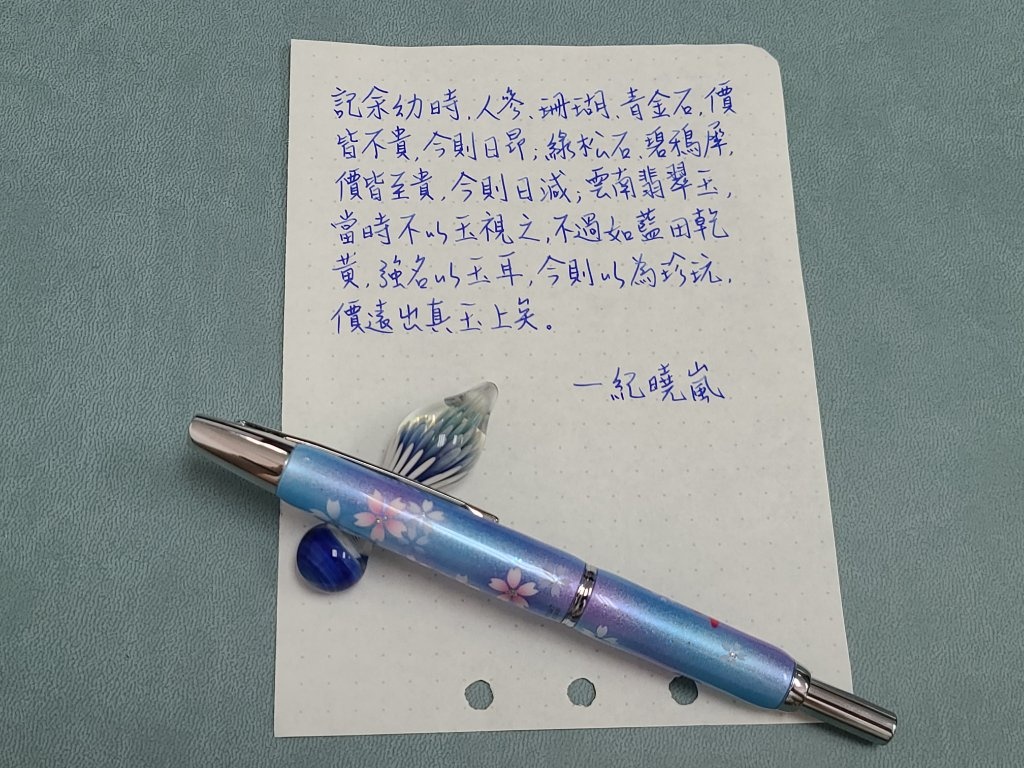 記余幼時,人參、珊瑚、青金石,價
皆不貴,今則日昂;綠松石、碧鴉犀,
價皆至貴,今則日減;雲南翡翠玉,
當時不以玉視之,不過如藍田乾
黃,強名以玉耳,今則以為珍玩,
價遠出真玉上矣。
—紀曉嵐